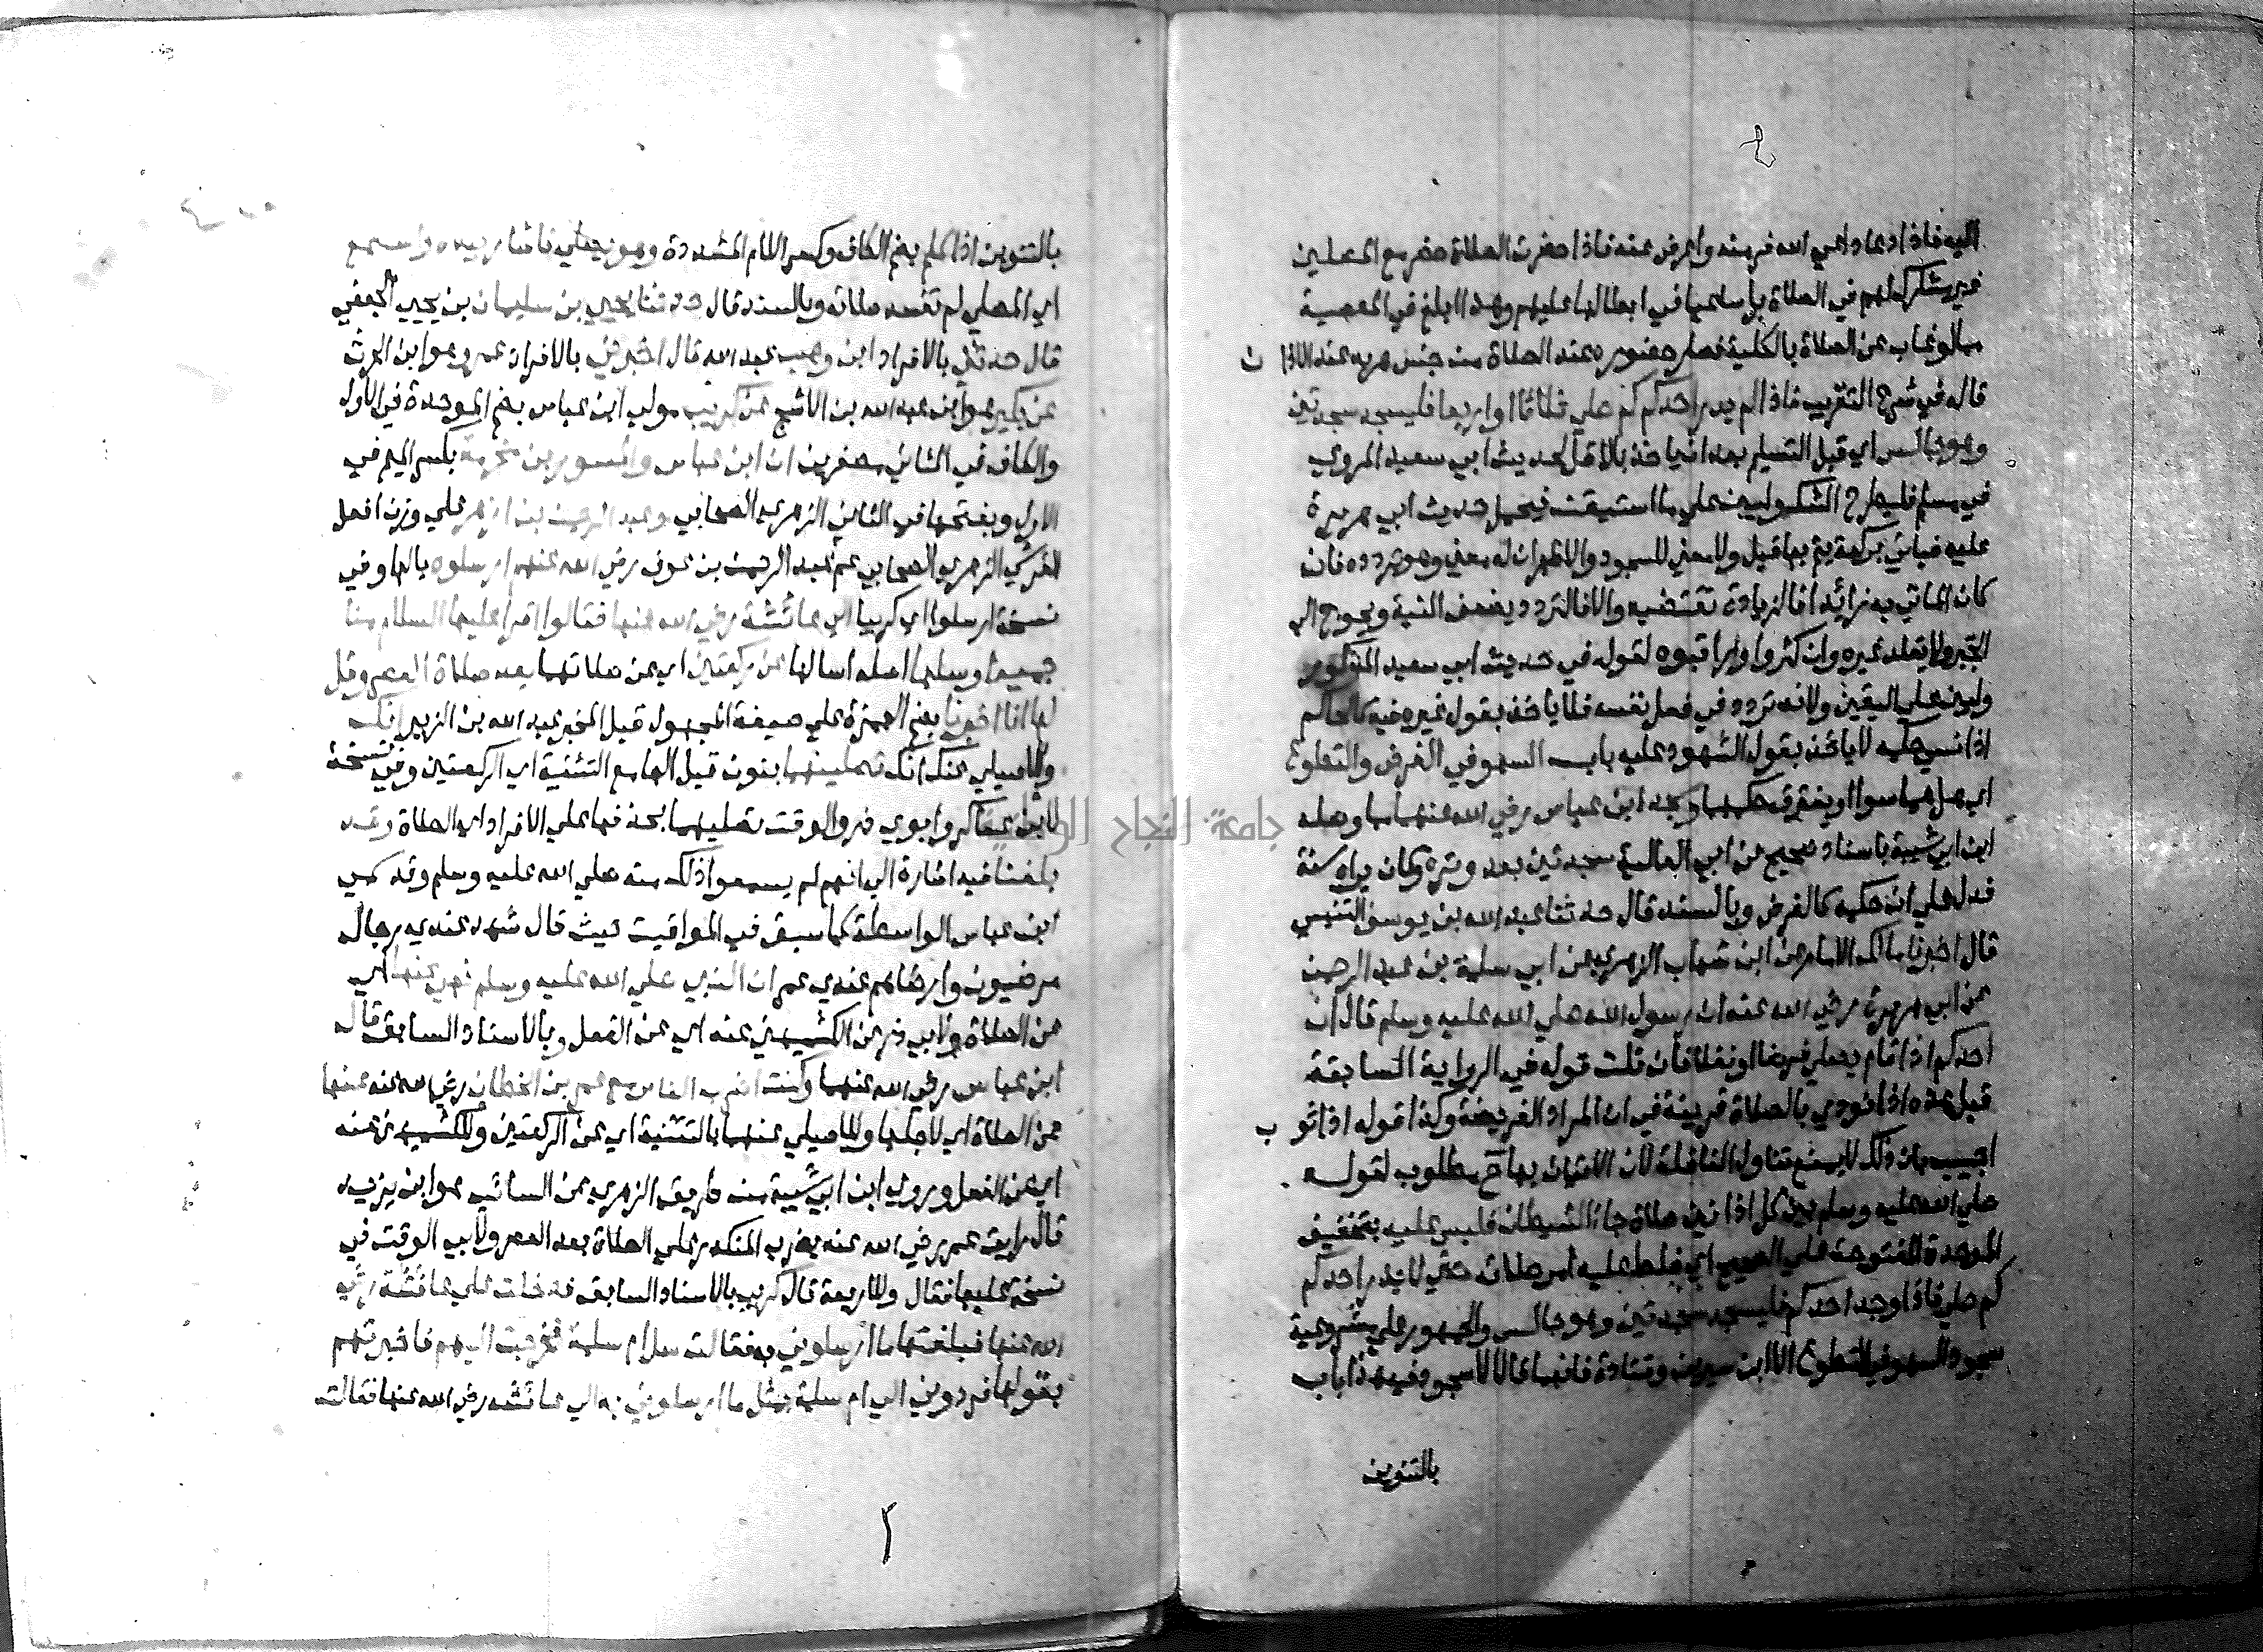 اليه فاذا دعا داعي الله فر منه واعرض عنه فاذا حضرت الصلاة حضر مع المصلين
غير مشارك لهم في الصلاة بل ساعيا في ابطالها عليهم وهذا ابلغ في المعصية
مما لو غاب عن الصلاة بالكلية فصار حضوره عند الصلاة من جنس هربه عند الاذان
قاله في شرح التقريب فاذا لم يدر احدكم كم صلي ثلاثا او اربعا فليسجد سجدتين
وهو جالس اي قبل التسليم بعد ان ياخذ بالاقل لحديث ابي سعيد المروي
في مسلم فليطرح الشك وليبن علي ما استيقنت فيحمل حديث ابي هريرة
عليه فياتي بركعة يتم بها قيل ولا معني للسجود والاظهر ان له معني وهو تردده فان
كان الماتي به زائدا فالزيادة تقتضيه والا فالتردد يضعف النية ويحوج الي
الجبر ولا يقلد غيره وان كثروا وراقبوه لقوله في حديث ابي سعيد المذكور
وليبن علي اليقين ولانه تردد في فعل نفسه فلا ياخذ بقول غيره فيه كالحاكم
اذا نسي حكمه لا ياخذ بقول الشهود عليه باب السهو في الفرض والتطوع
اي هل هما سوا او يفترق حكمهما وسجد ابن عباس رضي الله عنهما مما وصله
ابن ابي شيبة باسناد صحيح عن ابي العالية سجدتين بعد وتره وكان يراه سنة
فدل علي ان حكمه كالفرض وبالسند قال حدثنا عبد الله بن يوسف التنيسي
قال اخبرنا مالك الامام عن ابن شهاب الزهري عن ابي سلمة بن عبد الرحمن
عن ابي هريرة رضي الله عنه ان رسول الله صلي الله عليه وسلم قال ان
احدكم اذا قام يصلي فرضا او نفلا فان قلت قوله في الرواية السابقة
قبل هذه اذا نودي بالصلاة قرينة في ان المراد الفريضة وكذا قوله اذا ثوب
اجيب بان ذلك لا يمنع تناول النافلة لان الاتيان بها ح مطلوب لقوله
صلي الله عليه وسلم بين كل اذانين صلاة جاء الشيطان فلبس عليه بتخفيف
الموحدة المفتوحة علي الصحيح اي خلط عليه امر صلاته حتي لا يدر احدكم
كم صلي فاذا وجد احدكم فليسجد سجدتين وهو جالس والجمهور علي مشروعية
سجود السهو في التطوع الا ابن سيرين وقتادة فانهما قالا لا سجود فيه هذا باب
بالتنوين
بالتنوين اذا كلم بضم الكاف وكسر اللام المشددة وهو يصلي فاشار بيده واستمع
اي المصلي لم تفسد صلاته وبالسند قال حدثنا يحيي بن سليمان بن يحيي الجعفي
قال حدثني بالافراد ابن وهب عبد الله قال اخبرني بالافراد عمر وهو ابن الحرث
عن بكير هو ابن عبد الله بن الاشج عن كريب مولي ابن عباس بضم الموحدة في الاول
والكاف في الثاني مصغرين ان ابن عباس والمسور بن مخرمة بكسر الميم في
الاول وبفتحها في الثاني الزهري الصحابي وعبد الرحمن بن ازهر علي وزن افعل
القرشي الزهري الصحابي عم عبد الرحمن بن عوف رضي الله عنهم ارسلوه بالها وفي
نسخة ارسلوا اي كريبا الي عائشة رضي الله عنها فقالوا اقرا عليها السلام منا
جميعا وسلها اصله اسالها عن ركعتين اي عن صلاتهما بعد صلاة العصر وقل
لها انا اخبرنا بضم الهمزة علي صيغة المجهول قيل المخبر عبد الله بن الزبير انك
وللاصيلي عنك انك تصلينهما بنون قبل الها مع التثنية اي الركعتين وفي نسخة
لابن عساكر وابوي ذر والوقت تصليهما بحذفها علي الافراد اي الصلاة وقد
بلغنا فيه اشارة الي انهم لم يسمعوا ذلك منه صلي الله عليه وسلم وقد سمي
ابن عباس الواسطة كما سبق في المواقيت حيث قال شهد عندي رجال
مرضيون وارضاهم عندي عمر ان النبي صلي الله عليه وسلم نهي عنها اي
عن الصلاة ولابي ذر عن الكشميهني عنه اي عن الفعل وبالاسناد السابق قال
ابن عباس رضي الله عنهما وكنت اضرب الناس مع عمر بن الخطاب رضي الله عنه عنها
عن الصلاة اي لاجلها وللاصيلي عنهما بالتثنية اي عن الركعتين وللكشميهني عنه
اي عن الفعل وروي ابن ابي شيبة من طريق الزهري عن السائب هو ابن يزيد
قال رايت عمر رضي الله عنه يضرب المنكدر علي الصلاة بعد العصر ولابي الوقت في
نسخة عليها فقال وللاربعة قال كريب بالاسناد السابق فدخلت علي عائشة رضي
الله عنها فبلغتها ما ارسلوني به فقالت سل ام سلمة فخرجت اليهم فاخبرتهم
بقولها فردوني الي ام سلمة بمثل ما ارسلوني به الي عائشة رضي الله عنها فقالت
جامعة النجاح